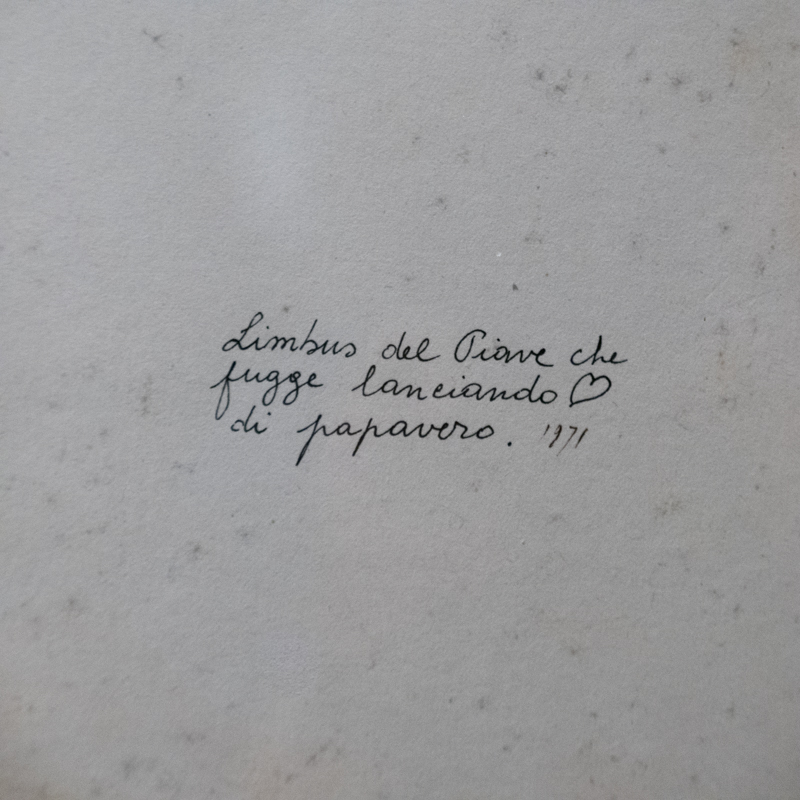 Limbus del Piave che
fugge lanciando ♡
di papavero. 1971